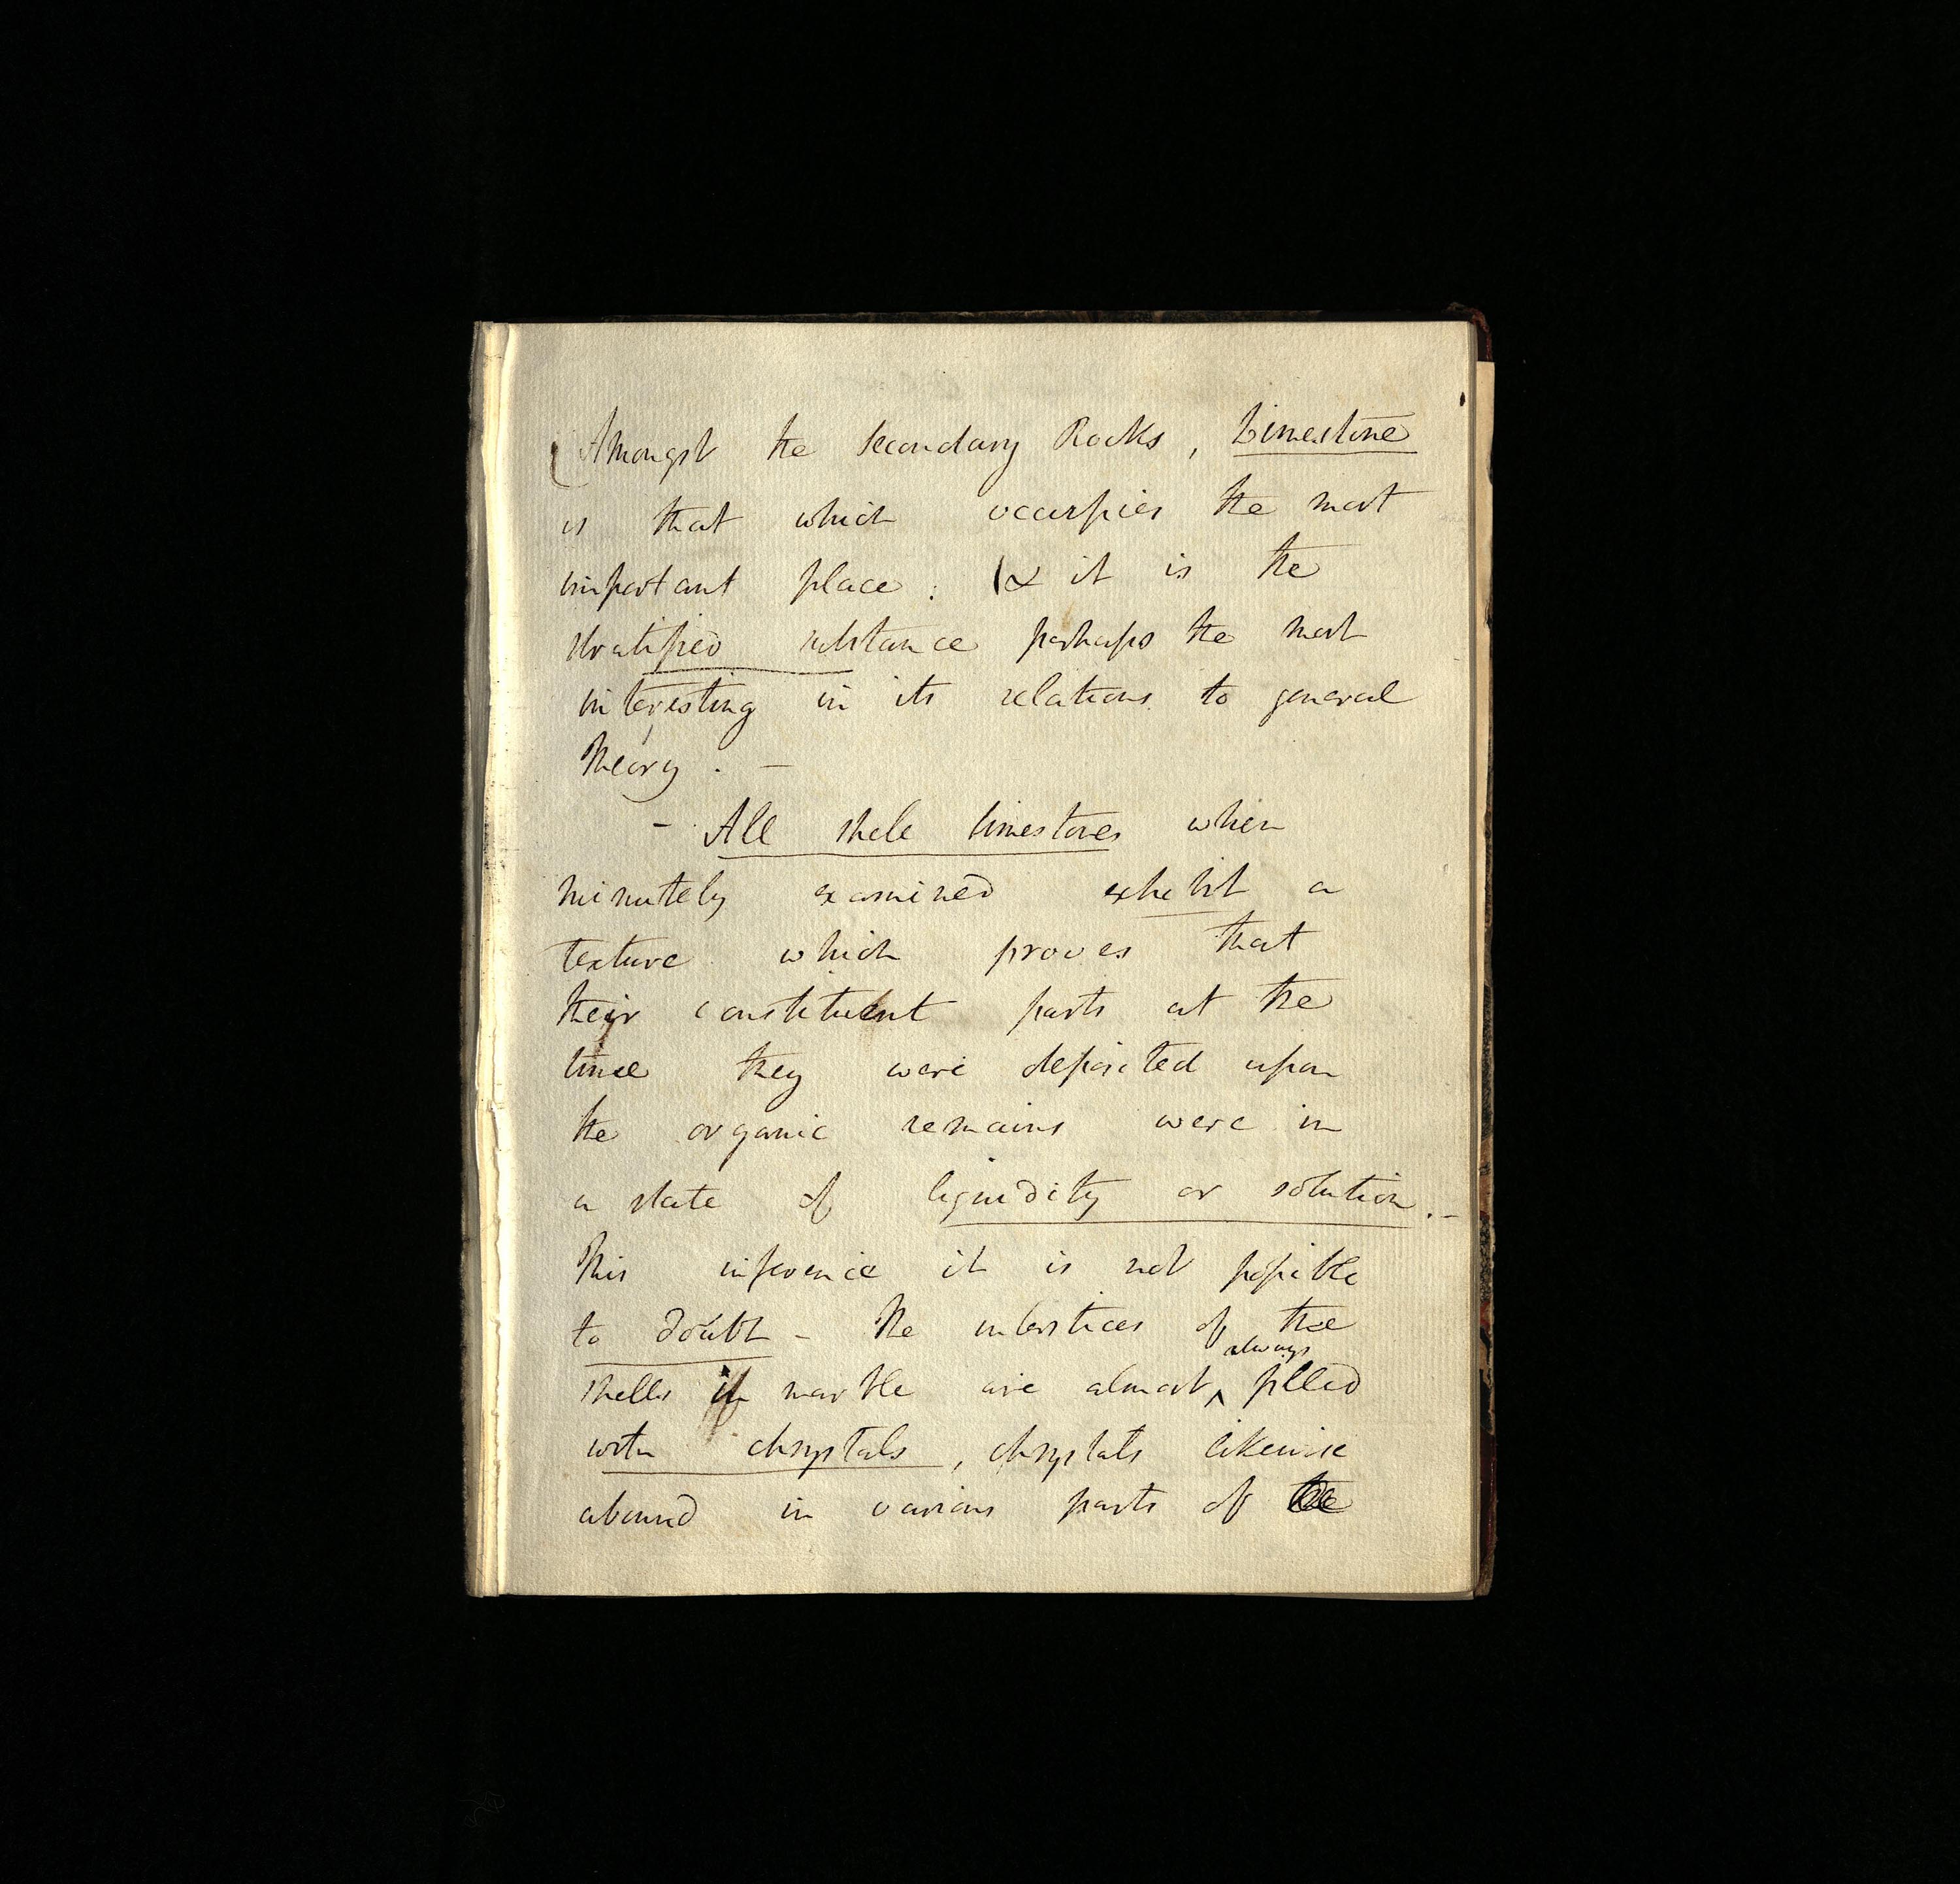 Amongst the secondary Rocks, Limestone
is that which occupies the most
important place: & it is the
stratified substance perhaps the most
interesting in its relations to general
theory. –
– All shell limestones when
minutely examined exhibit a
texture which proves that
their constituent parts at the
time they were deposited upon
the organic remains were in
a state of liquidity or solution. –
This inference it is not possible
to doubt – The interstices of the
shells in marble are almost always filled
with chrystals, chrystals likewise
abound in various parts of the